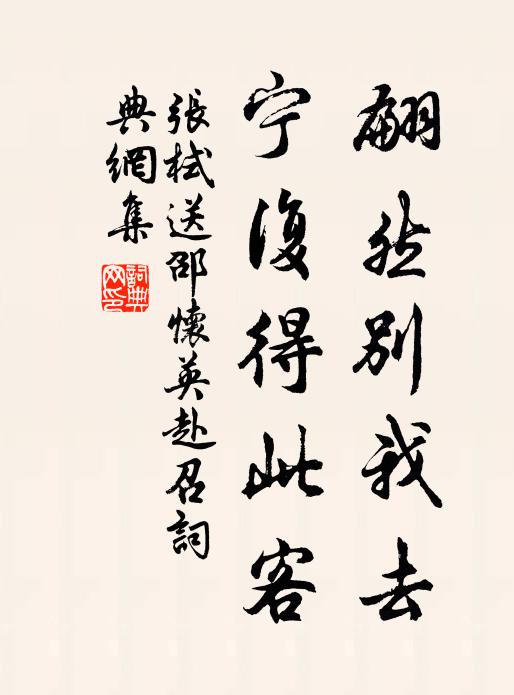 翩然别我去
宁復得此客
張栻送邵懷英赴召詞
典網集
詞典
网印